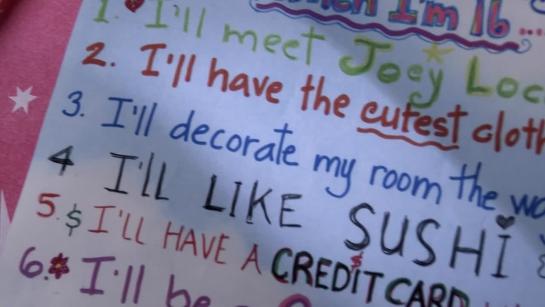 When I'm 16...
1. I'll meet Joey Loc
2. I'll have the cutest cloth
3. I'll decorate my room the wa
4 I'LL LIKE SUSHi
5. $ I'LL HAVE A CREDIT CARD
6. I'll be a